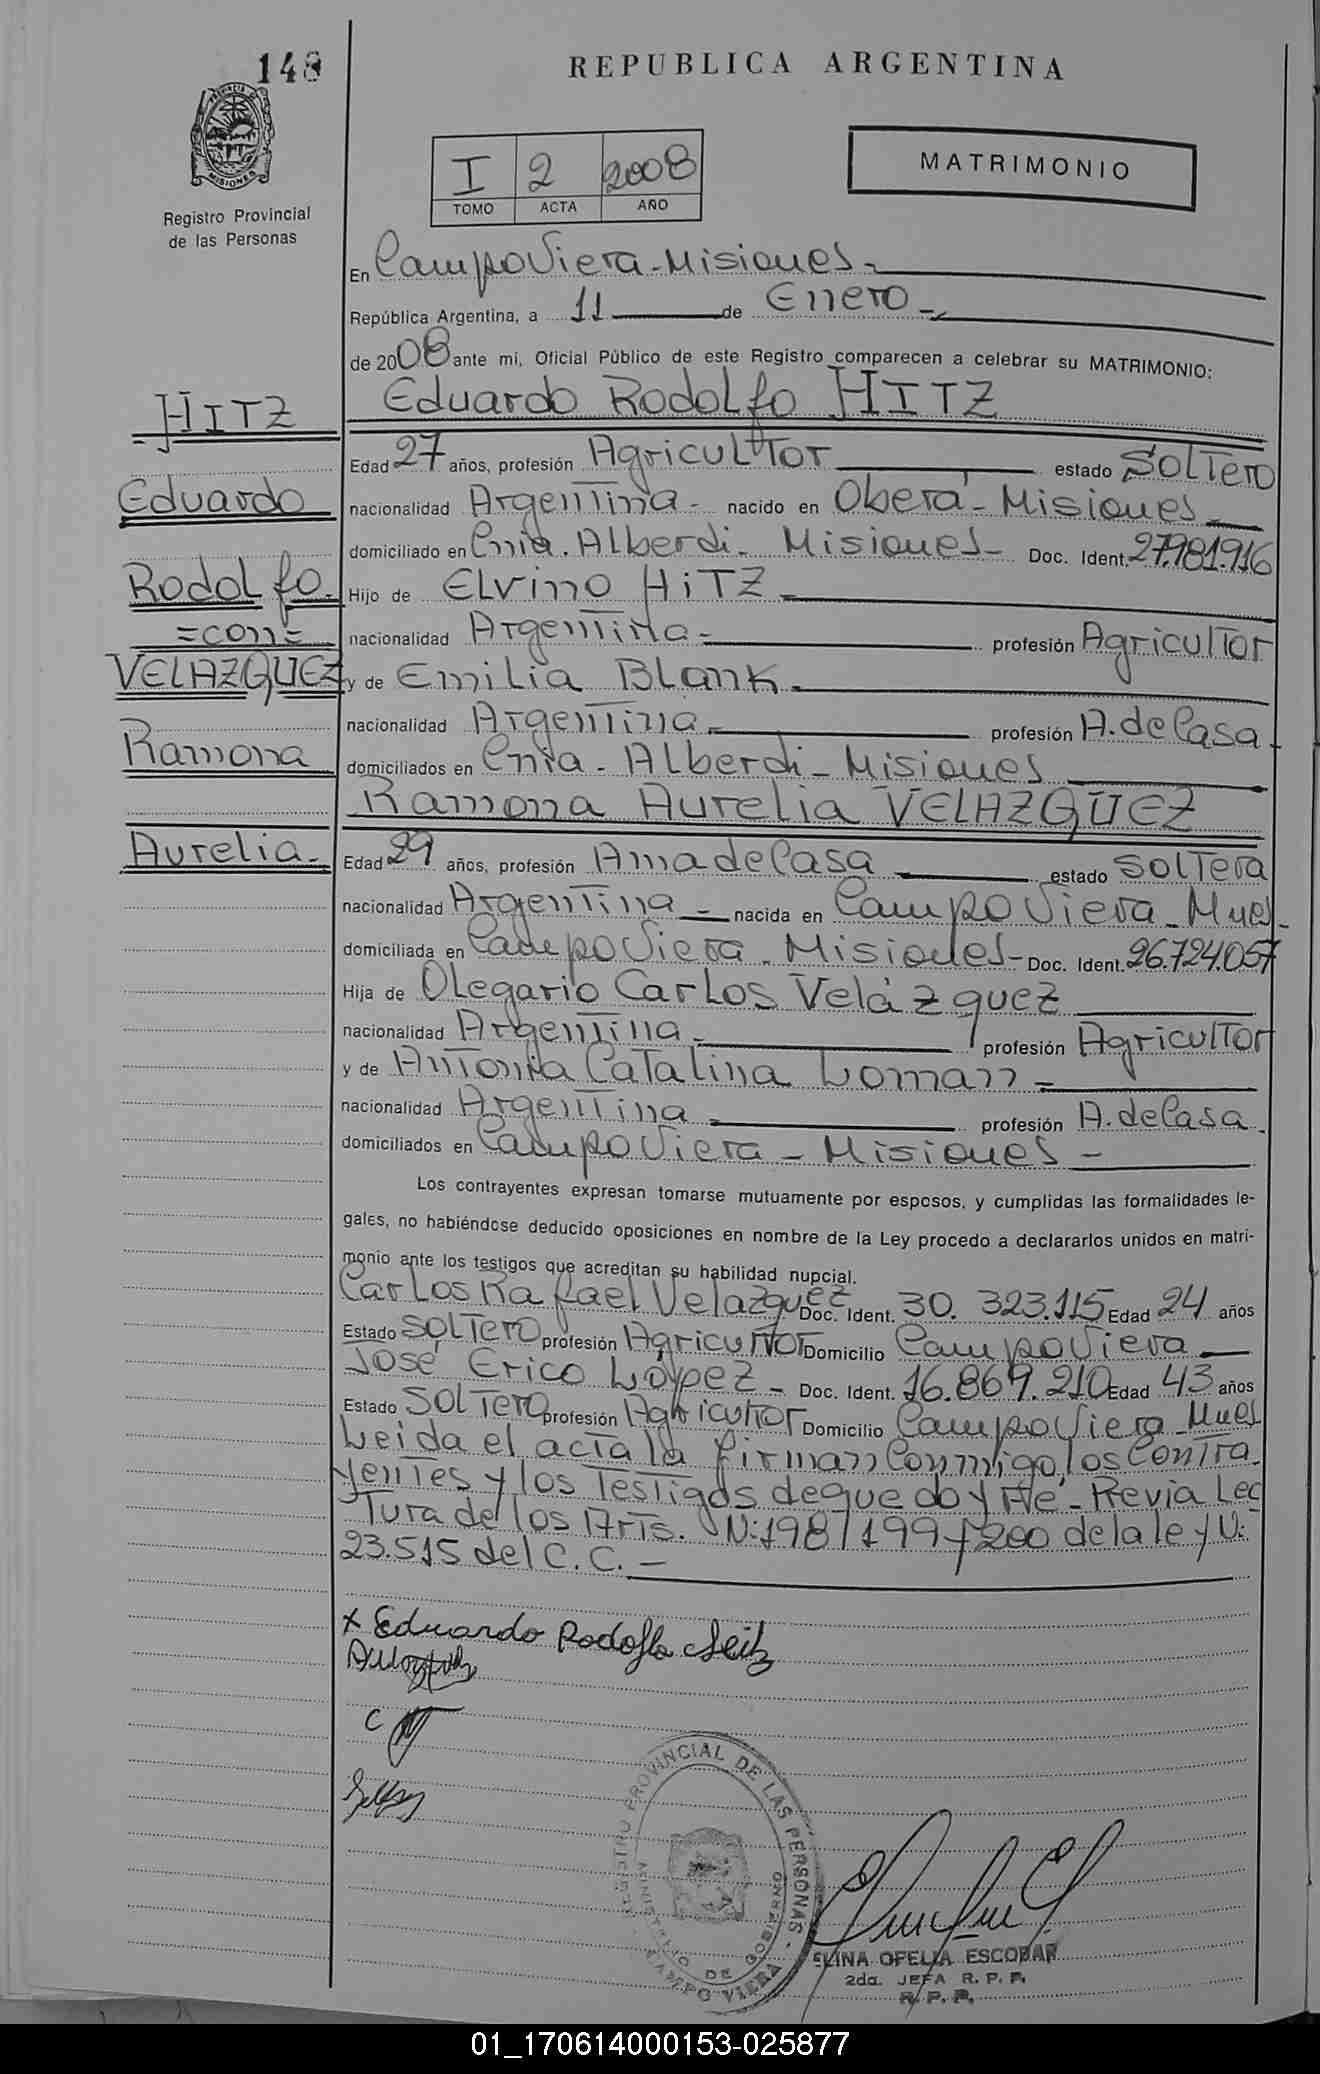 148
REPUBLICA ARGENTINA
PROVINCIA DE
MISIONES
Registro Provincial
de las Personas
I 2 2008
TOMO ACTA AÑO
MATRIMONIO
En Campo Viera - Misiones -
República Argentina, a 11 de Enero -
de 2008 ante mi, Oficial Público de este Registro comparecen a celebrar su MATRIMONIO:
HITZ
Eduardo
Rodolfo.
=con=
VELAZQUEZ
Ramona
Aurelia -
Eduardo Rodolfo HITZ
Edad 27 años, profesión Agricultor estado Soltero
nacionalidad Argentina - nacido en Oberá - Misiones -
domiciliado en Cnia. Alberdi - Misiones - Doc. Ident. 27.981.916
Hijo de Elvino HiTZ -
nacionalidad Argentina - profesión Agricultor
y de Emilia Blank -
nacionalidad Argentina - profesión A. de Casa -
domiciliados en Cnia - Alberdi - Misiones
Ramona Aurelia VELAZQUEZ
Edad 29 años, profesión Ama de Casa estado Soltera
nacionalidad Argentina - nacida en Campo Viera - Mnes -
domiciliada en Campo Viera - Misiones - Doc. Ident. 26.724.057
Hija de Olegario Carlos Velázquez
nacionalidad Argentina - profesión Agricultor
y de Antonia Catalina Loman -
nacionalidad Argentina profesión A. de Casa -
domiciliados en Campo Viera - Misiones -
Los contrayentes expresan tomarse mutuamente por esposos, y cumplidas las formalidades le-
gales, no habiéndose deducido oposiciones en nombre de la Ley procedo a declararlos unidos en matri-
monio ante los testigos que acreditan su habilidad nupcial.
Carlos Rafael Velazquez Doc. Ident. 30. 323.115 Edad 24 años
Estado Soltero profesión Agricultor Domicilio Campo Viera
José Erico López - Doc. Ident. 16.869.210 Edad 43 años
Estado Soltero profesión Agricultor Domicilio Campo Viera - Mnes
Leida el acta la firman conmigo, los contra-
yentes y los testigos de que doy Fé - Previa Lec
tura de los Arts. Nº: 198/199 y 200 de la ley Nº:
23.515 del C. C. -
x Eduardo Rodolfo Heitz
REGISTRO PROVINCIAL DE LAS PERSONAS -
MINISTERIO DE GOBIERNO
CAMPO VIERA
ELINA OFELIA ESCOBAR
2da. JEFA R. P. P.
R. P. P.
01_170614000153-025877